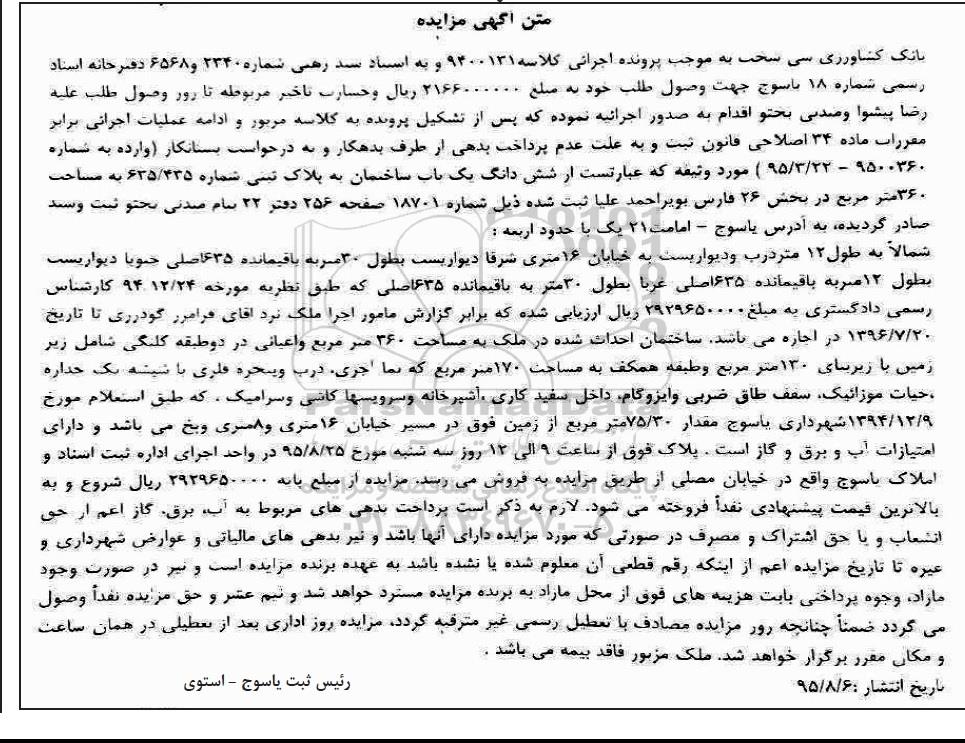 متن آگهی مزایده
بانک کشاورزی سی سخت به موجب پرونده اجرائی کلاسه ۹۴۰۰۱۳۱ و به استناد سند رهنی شماره ۲۳۴۰ و ۶۵۶۸ دفترخانه اسناد
رسمی شماره ۱۸ یاسوج جهت وصول طلب خود به مبلغ ۲۱۶۶۰۰۰۰۰۰ ریال وخسارت تاخیر مربوطه تا روز وصول طلب علیه
رضا پیشوا وصدنی بختو اقدام به صدور اجرائیه نموده که پس از تشکیل پرونده به کلاسه مزبور و ادامه عملیات اجرائی برابر
مقررات ماده ۳۴ اصلاحی قانون ثبت و به علت عدم پرداخت بدهی از طرف بدهکار و به درخواست بستانکار (وارده به شماره
۹۵۰۰۳۶۰ – ۹۵/۳/۲۲ ) مورد وثیقه که عبارتست از شش دانگ یک باب ساختمان به پلاک ثبتی شماره ۶۳۵/۴۳۵ به مساحت
۳۶۰متر مربع در بخش ۲۶ فارس بویراحمد علیا ثبت شده ذیل شماره ۱۸۷۰۱ صفحه ۲۵۶ دفتر ۲۲ بنام صدنی بختو ثبت وسند
صادر گردیده، به آدرس یاسوج – امامت۲۱ یک با حدود اربعه :
شمالاً به طول۱۲ متردرب ودیواریست به خیابان ۱۶متری شرقا دیواریست بطول ۳۰متربه باقیمانده ۶۳۵اصلی جنوبا دیواریست
بطول ۱۲متربه باقیمانده ۶۳۵اصلی غربا بطول ۳۰متر به باقیمانده ۶۳۵اصلی که طبق نظریه مورخه ۹۴.۱۲/۲۴ کارشناس
رسمی دادگستری به مبلغ۲۹۲۹۶۵۰۰۰۰ ریال ارزیابی شده که برابر گزارش مامور اجرا ملک نزد اقای فرامرز گودرزی تا تاریخ
۱۳۹۶/۷/۲۰ در اجازه می باشد. ساختمان احداث شده در ملک به مساحت ۳۶۰ متر مربع واعیانی در دوطبقه کلنگی شامل زیر
زمین با زیربنای ۱۳۰متر مربع وطبقه همکف به مساحت ۱۷۰متر مربع که نما آجری، درب وپنجره فلزی با شیشه یک جداره
،حیات موزائیک، سقف طاق ضربی وایزوگام، داخل سفید کاری ،آشپزخانه وسرویسها کاشی وسرامیک . که طبق استعلام مورخ
۱۳۹۴/۱۲/۹شهرداری یاسوج مقدار ۷۵/۳۰متر مربع از زمین فوق در مسیر خیابان ۱۶متری و۸متری وپخ می باشد و دارای
امتیازات آب و برق و گاز است . پلاک فوق از ساعت ۹ الی ۱۲ روز سه شنبه مورخ ۹۵/۸/۲۵ در واحد اجرای اداره ثبت اسناد و
املاک یاسوج واقع در خیابان مصلی از طریق مزایده به فروش می رسد. مزایده از مبلغ پایه ۲۹۲۹۶۵۰۰۰۰ ریال شروع و به
بالاترین قیمت پیشنهادی نقداً فروخته می شود. لازم به ذکر است پرداخت بدهی های مربوط به آب، برق، گاز اعم از حق
انشعاب و یا حق اشتراک و مصرف در صورتی که مورد مزایده دارای آنها باشد و نیز بدهی های مالیاتی و عوارض شهرداری و
غیره تا تاریخ مزایده اعم از اینکه رقم قطعی آن معلوم شده یا نشده باشد به عهده برنده مزایده است و نیز در صورت وجود
مازاد، وجوه پرداختی بابت هزینه های فوق از محل مازاد به برنده مزایده مسترد خواهد شد و نیم عشر و حق مزایده نقداً وصول
می گردد ضمناً چنانچه روز مزایده مصادف با تعطیل رسمی غیر مترقبه گردد، مزایده روز اداری بعد از تعطیلی در همان ساعت
و مکان مقرر برگزار خواهد شد. ملک مزبور فاقد بیمه می باشد .
تاریخ انتشار :۹۵/۸/۶
رئیس ثبت یاسوج – استوی
ParsNamadData
پایگاه اطلاع رسانی مناقصه و مزایده
۰۲۱-۸۸۳۴۹۶۷۰-۵